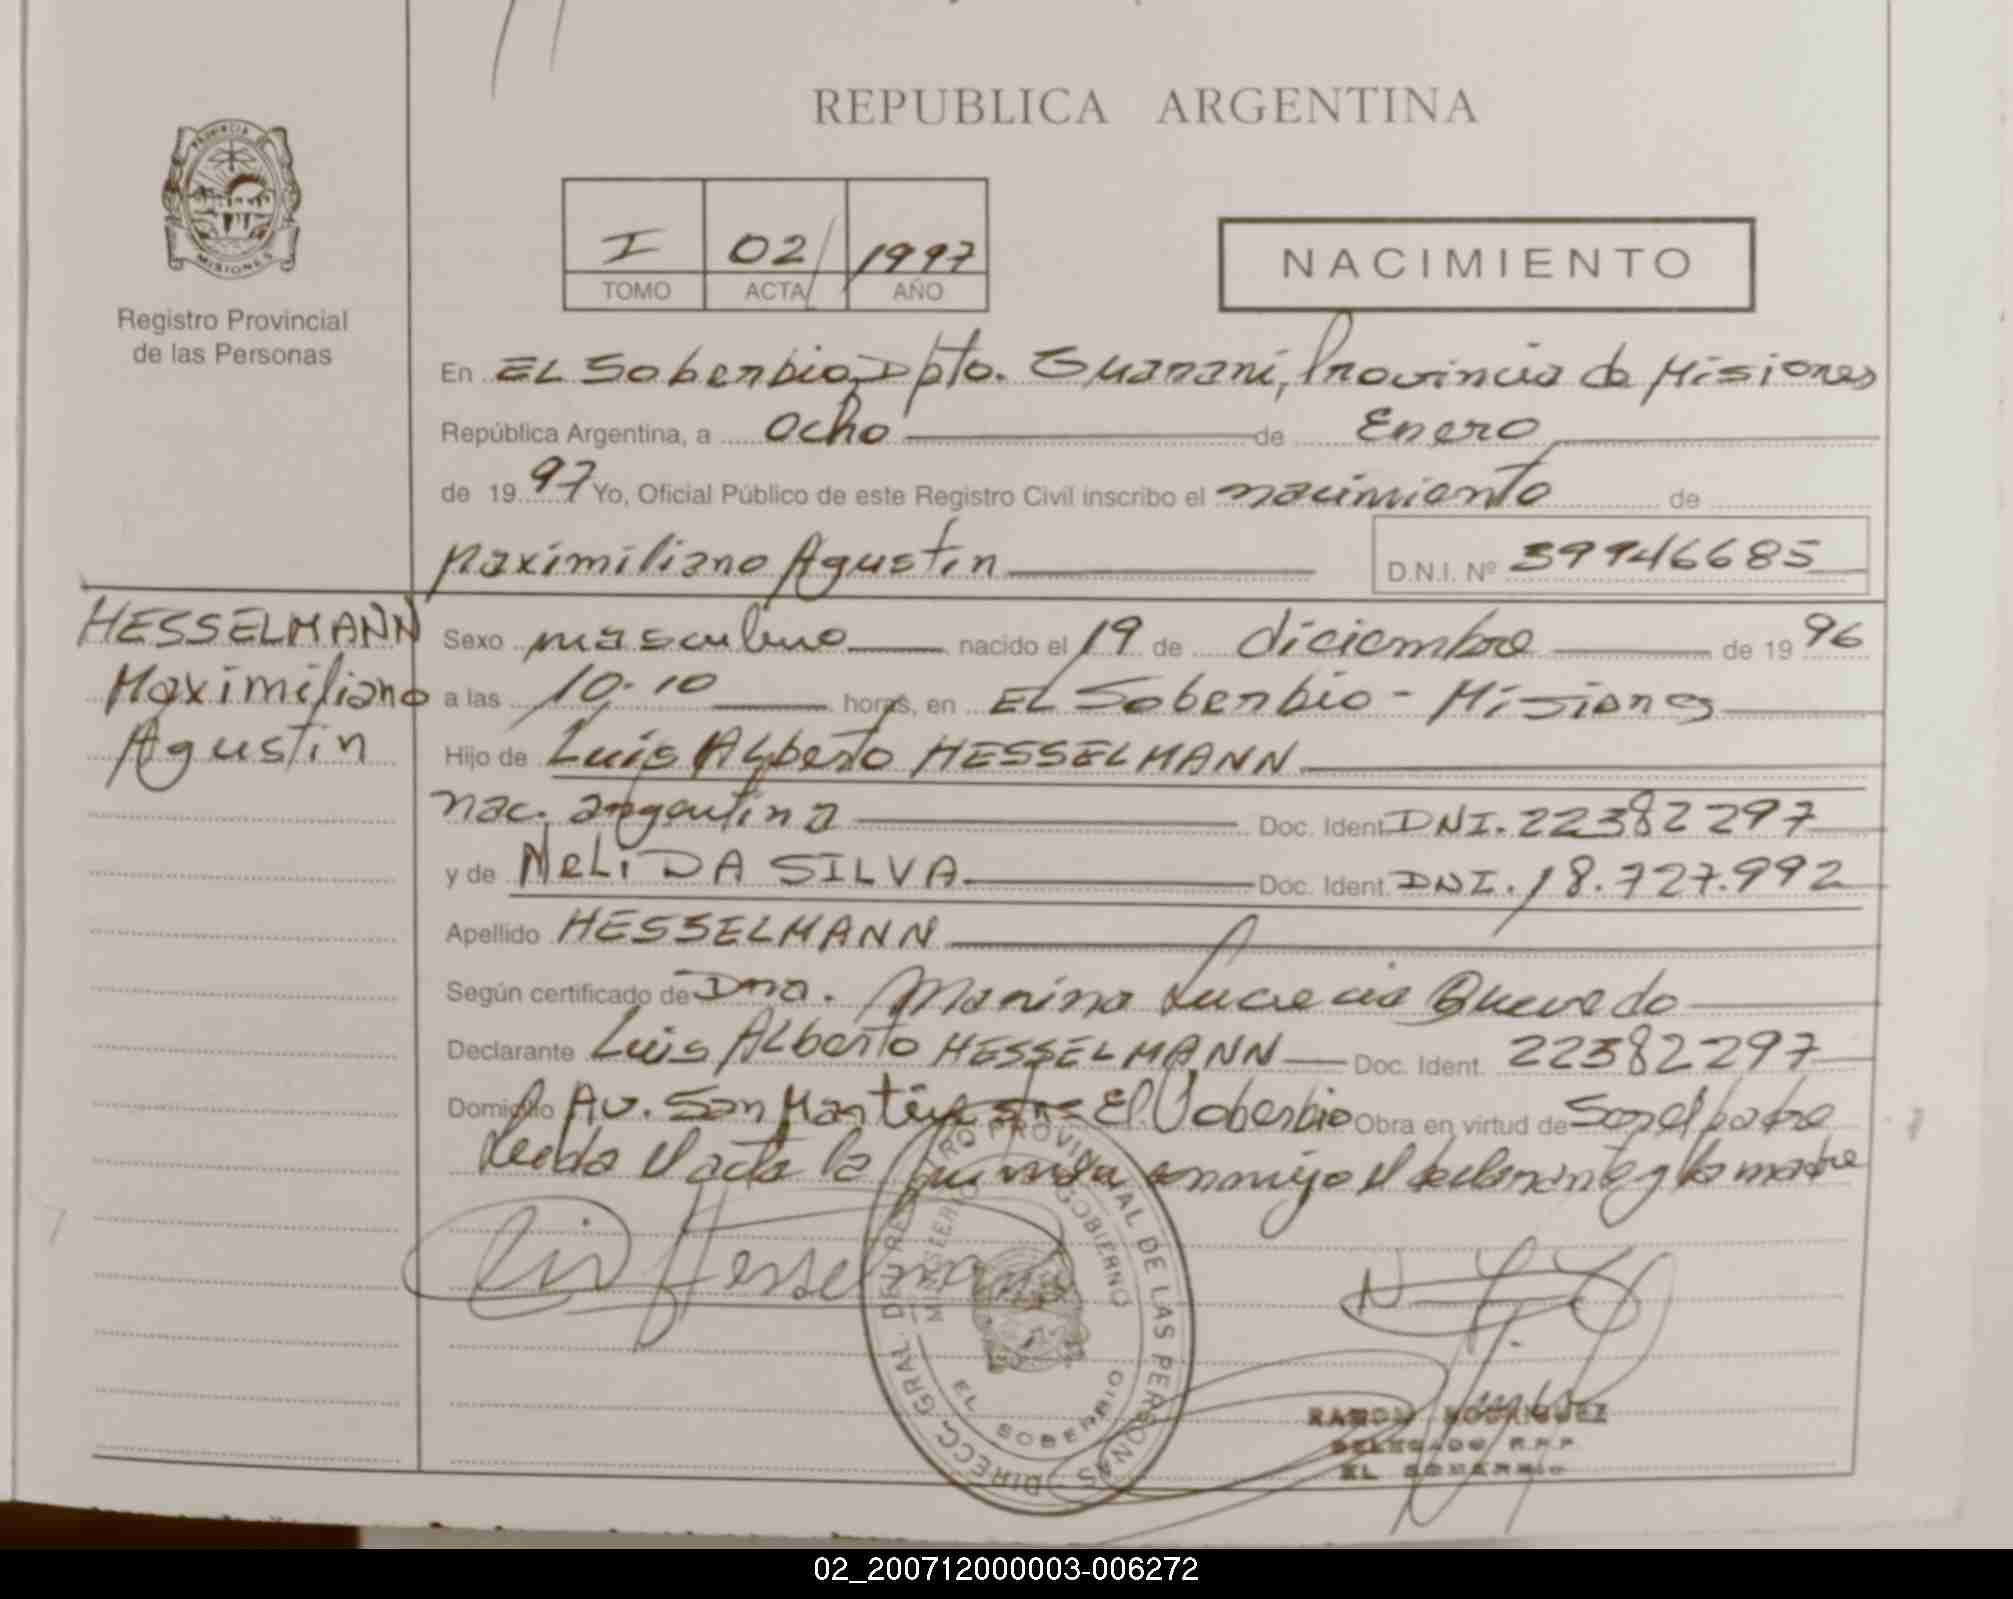 REPUBLICA ARGENTINA
PROVINCIA
MISIONES
Registro Provincial
de las Personas
I 02 1997
TOMO ACTA AÑO
NACIMIENTO
En EL Soberbio, Dpto. Guaraní, Provincia de Misiones
República Argentina, a Ocho de Enero
de 1997 Yo, Oficial Público de este Registro Civil inscribo el nacimiento de
Maximiliano Agustín D.N.I. Nº 39946685
HESSELMANN
Maximiliano
Agustín
Sexo masculino nacido el 19 de diciembre de 1996
a las 10.10 horas, en EL Soberbio - Misiones
Hijo de Luis Alberto HESSELMANN
nac. argentina Doc. Ident. DNI. 22382297
y de NELI DA SILVA Doc. Ident. DNI. 18.727.992
Apellido HESSELMANN
Según certificado de Dra. Marina Lucrecia Quevedo
Declarante Luis Alberto HESSELMANN Doc. Ident. 22382297
Domicilio Av. San Martín El Soberbio Obra en virtud de Ser el padre
Leída el acta la firman conmigo el declarante y la madre
Luis Hesselmann
DIRECC. GRAL. DEL REGISTRO PROVINCIAL DE LAS PERSONAS
MINISTERIO GOBIERNO
EL SOBERBIO
RAMON RODRIGUEZ
DELEGADO R.P.P.
EL SOBERBIO
02_200712000003-006272